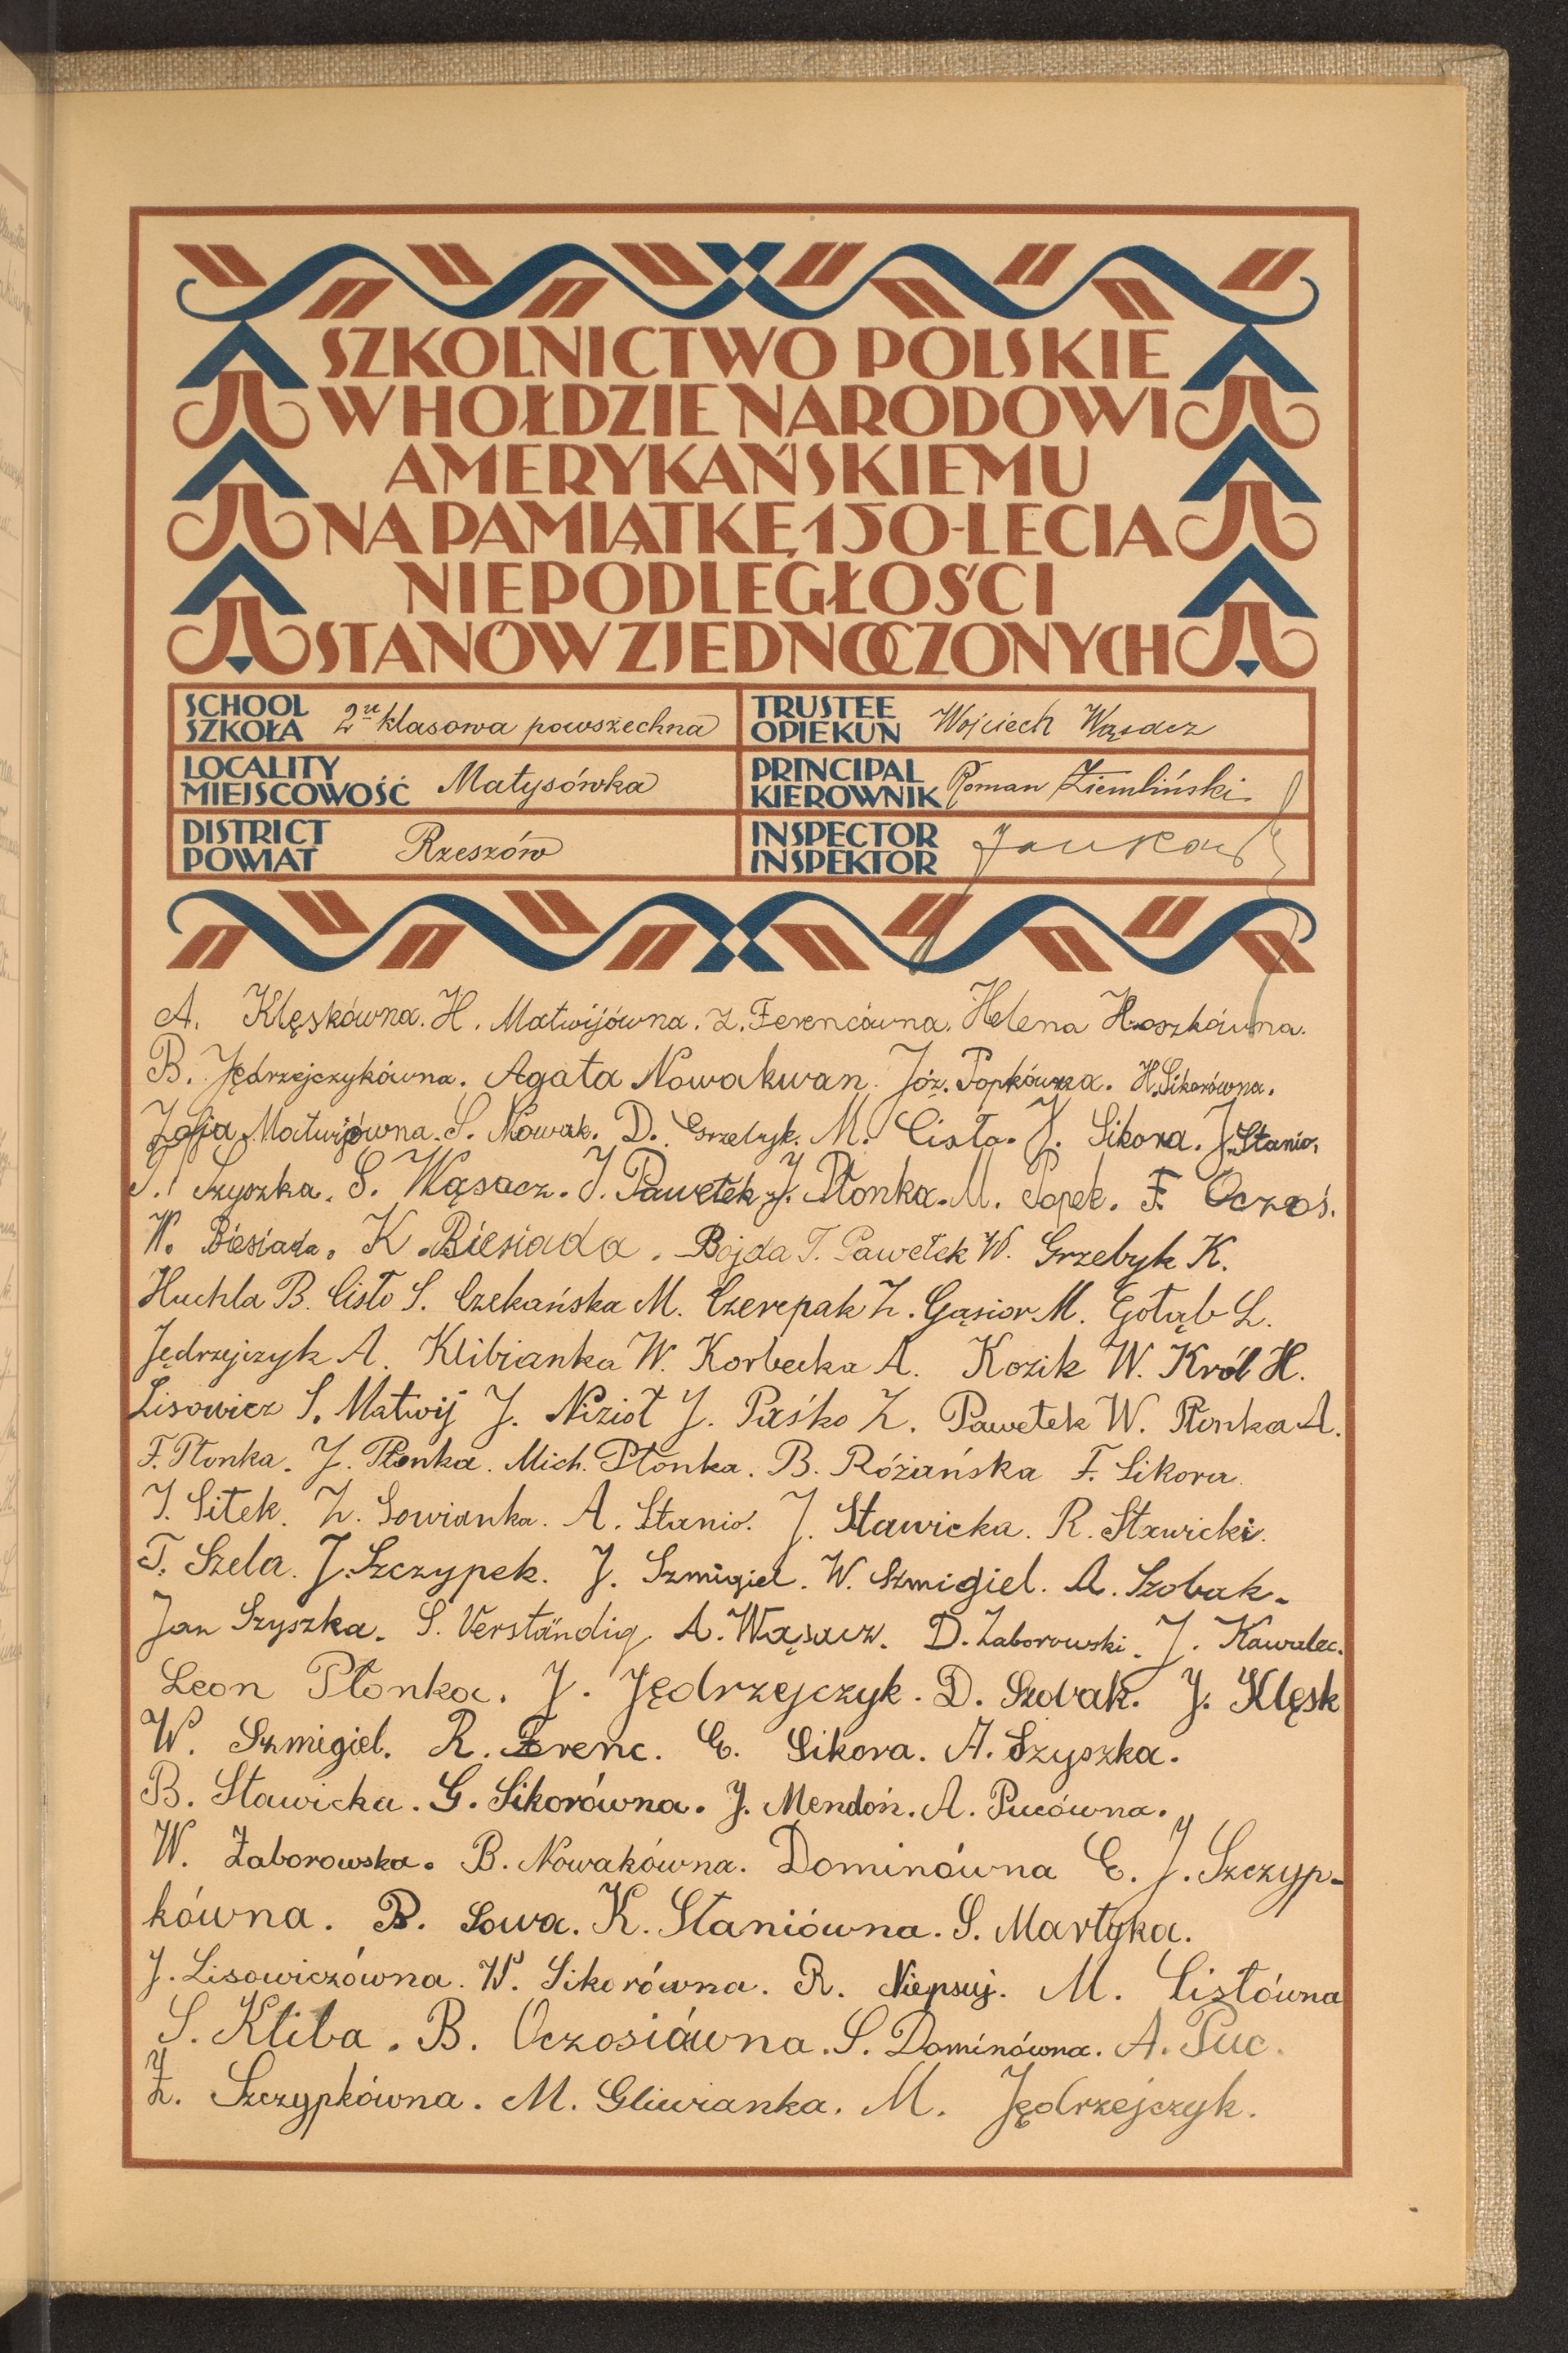 SZKOLNICTWO POLSKIE
W HOŁDZIE NARODOWI
AMERYKAŃSKIEMU
NA PAMIĄTKĘ 150-LECIA
NIEPODLEGŁOŚCI
STANÓW ZJEDNOCZONYCH
SCHOOL SZKOŁA 2u klasowa powszechna TRUSTEE OPIEKUN Wojciech Wąsacz
LOCALITY MIEJSCOWOŚĆ Matysówka PRINCIPAL KIEROWNIK Roman Ziemliński
DISTRICT POWIAT Rzeszów INSPECTOR INSPEKTOR
A. Klęskówna. H. Matwijówna. Z. Ferencówna. Helena Hroszkówna.
B. Jędrzejczykówna. Agata Nowakwan. Józ. Popkówna. H. Sikorówna.
Zofja Matwijówna. S. Nowak. D. Grzebyk. M. Cisło. J. Sikora. J. Stanio.
T. Szyszka. S. Wąsacz. J. Pawełek. J. Płonka. M. Popek. F. Oczoś.
W. Biesiada. K. Biesiada. Bojda T. Pawełek W. Grzebyk K.
Huchla B. Cisło S. Czekańska M. Czerepak Z. Gąsior M. Gołąb L.
Jędrzejczyk A. Klibianka W. Korbecka A. Kozik W. Król H.
Lisowicz S. Matwij J. Nizioł J. Paśko Z. Pawełek W. Płonka A.
F. Płonka. J. Płonka. Mich. Płonka. B. Różańska F. Sikora.
J. Sitek. Z. Sowianka. A. Stanio. J. Stawicka. R. Stawicki.
T. Szela. J. Szczypek. J. Szmigiel. W. Szmigiel. A. Szobak.
Jan Szyszka. S. Verständig. A. Wąsacz. D. Zaborowski. J. Kawalec.
Leon Płonka. J. Jędrzejczyk. D. Szobak. J. Klęsk
W. Szmigiel. R. Ferenc. E. Sikora. A. Szyszka.
B. Stawicka. G. Sikorówna. J. Mendoń. A. Pucówna.
W. Zaborowska. B. Nowakówna. Dominówna E. J. Szczyp-
kówna. B. Sowa. K. Staniówna. S. Martyka.
J. Lisowiczówna. W. Sikorówna. R. Niepsuj. M. Cisłówna
S. Kliba. B. Oczosiówna. S. Dominówna. A. Puc.
Z. Szczypkówna. M. Gliwianka. M. Jędrzejczyk.